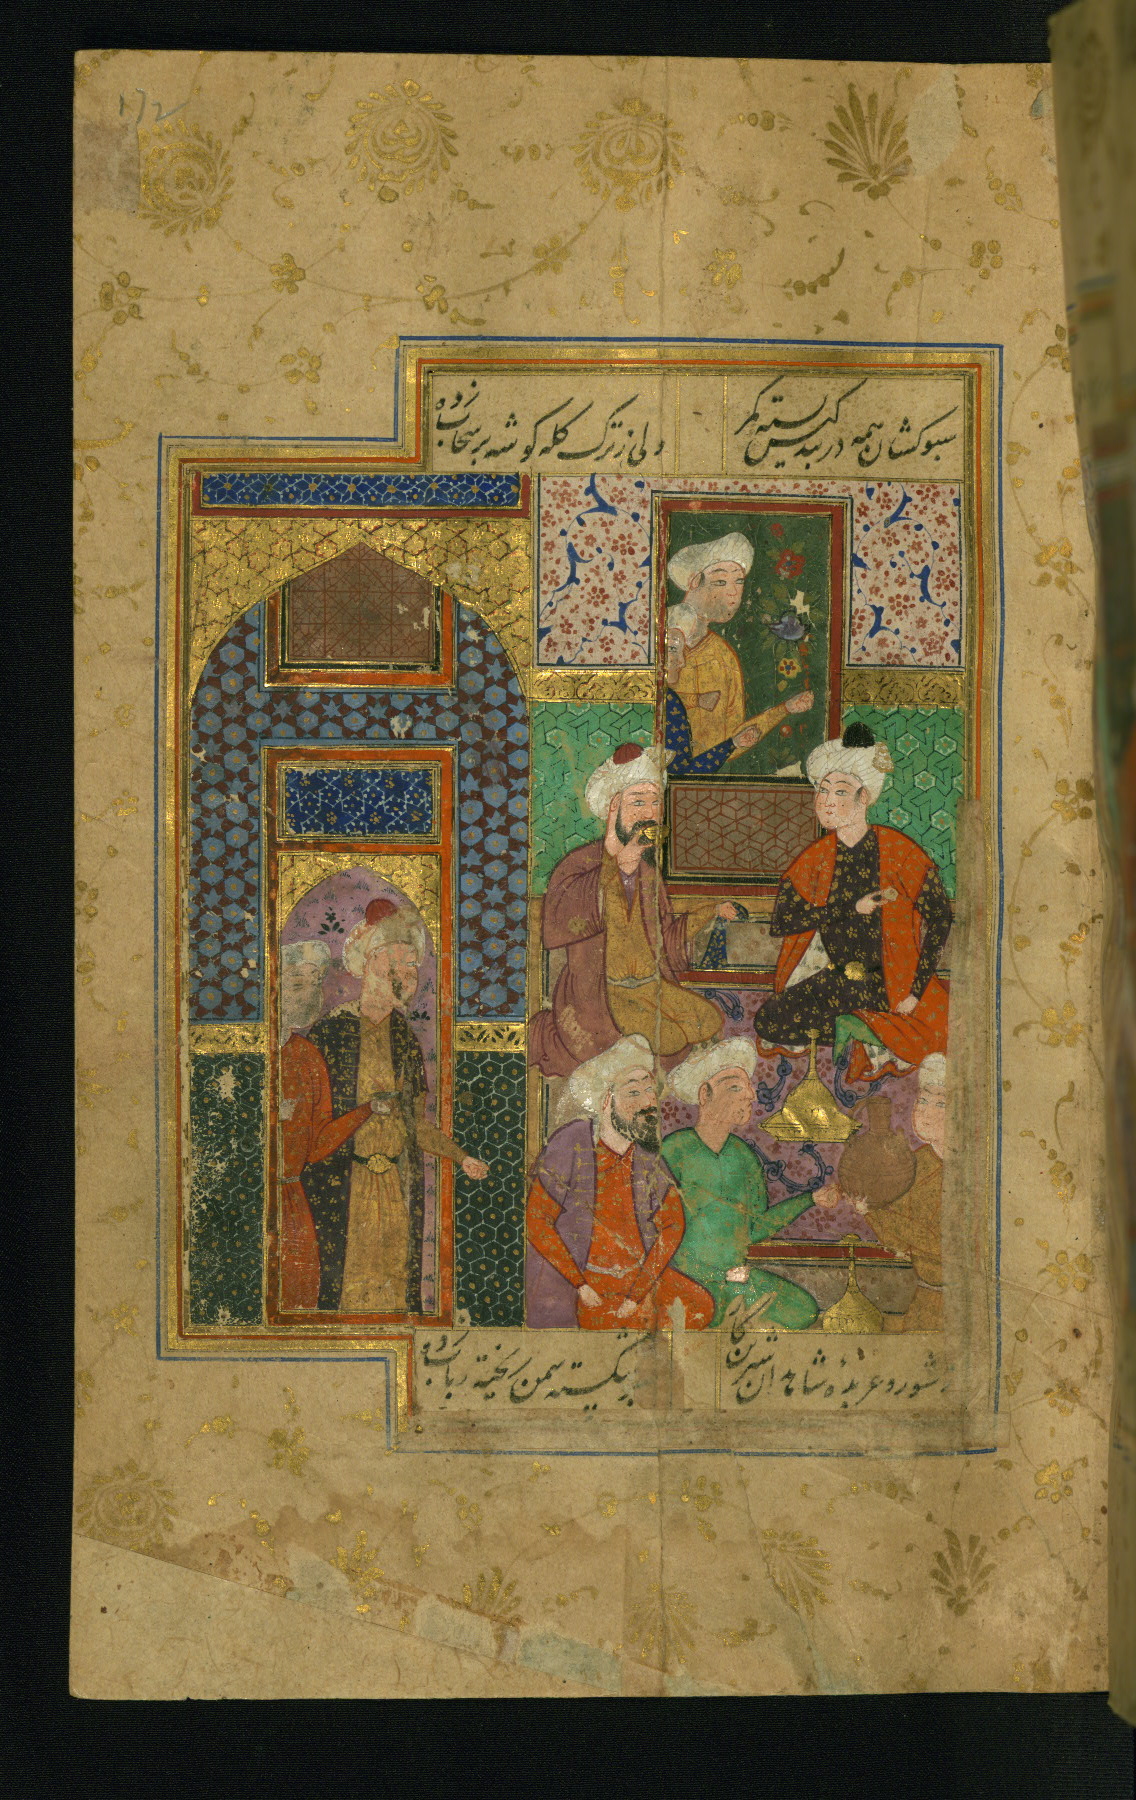 ۱۷۲
سبوکشان همه در بندگیش بسته کمر
ولی ز ترک کله گوشه بر سحاب زده
شور و عربدهٔ شاهدان شیرین کار
شکسته سمن ریخته رباب زده